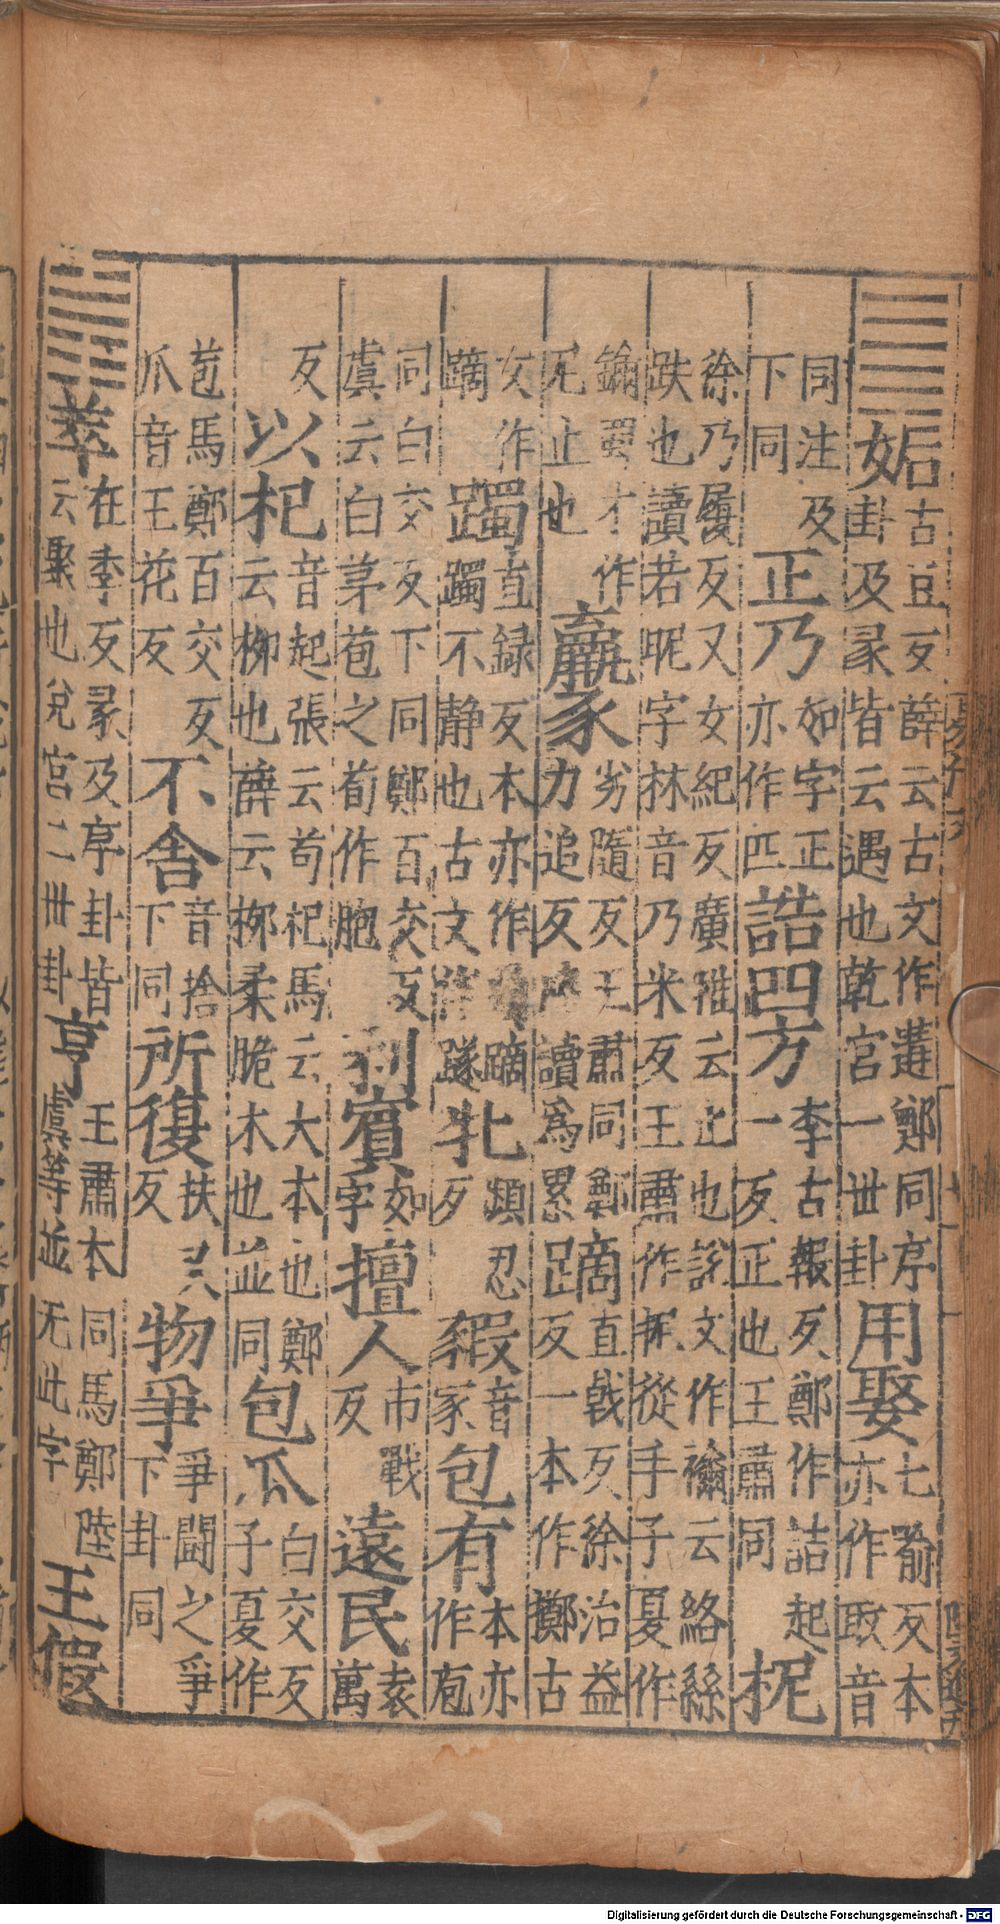 姤古豆反薛云古文作遘鄭同序卦及彖皆云遇也乾宮一世卦用娶七喻反本亦作取音
同注及下同正乃如字正亦作匹誥四方李古報反鄭作詰起一反正也王肅同柅
徐乃履反又女紀反廣雅云止也說文作檷云絡絲趺也讀若昵字林音乃米反王肅作抳從手子夏作
鑈蜀才作无止也羸豕劣隨反王肅同鄭力追反讀為累蹢直戟反徐治益反一本作擲古
文作蹢躅直録反本亦作蹢躅不静也古文牝頻忍反豭音家包有本亦作庖
同白交反下同鄭百交反虞云白茅苞之荀作胞利賓如字擅人市戰反遠民袁萬
反以杞音起張云苟杞馬云大木也鄭云柳也薛云柳柔脆木也並同包瓜白交反子夏作
苞馬鄭百交反瓜音王花反不舍音捨下同所復扶又反物爭爭鬭之爭下卦同
萃在季反彖及序卦皆云聚也兌宮二世卦亨王肅本同馬鄭陸虞等並无此字王假
Digitalisierung gefördert durch die Deutsche Forschungsgemeinschaft - DFG